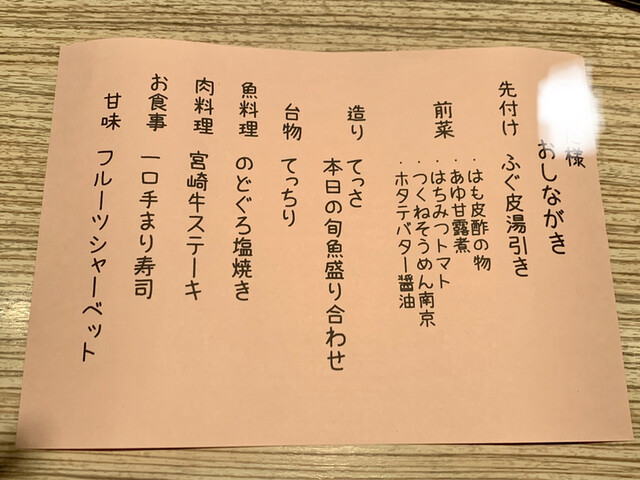 様
おしながき
先付け ふぐ皮湯引き
前菜 ・はも皮酢の物
・あゆ甘露煮
・はちみつトマト
・つくねそうめん南京
・ホタテバター醤油
造り てっさ
本日の旬魚盛り合わせ
台物 てっちり
魚料理 のどぐろ塩焼き
肉料理 宮崎牛ステーキ
お食事 一口手まり寿司
甘味 フルーツシャーベット